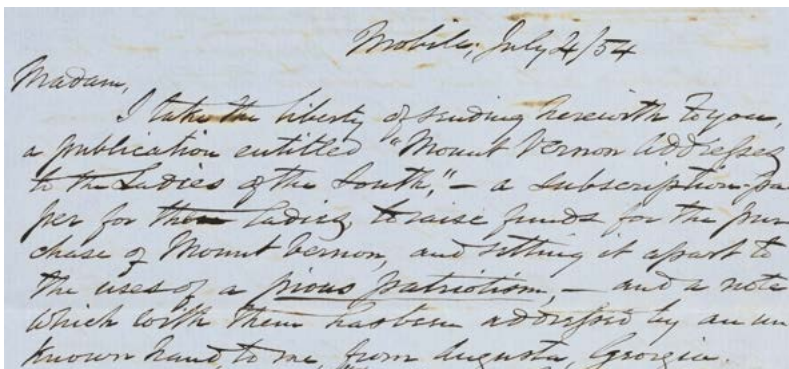 Mobile, July 4/54
Madam,
I take the liberty of sending herewith to you,
a publication entitled "Mount Vernon addresses
to the Ladies of the South," – a subscription pa
per for those Ladies, to raise funds for the pur
chase of Mount Vernon, and setting it apart to
the uses of a pious patriotism, – and a note
which with them has been addressed by an un
known hand, to me, from Augusta, Georgia.